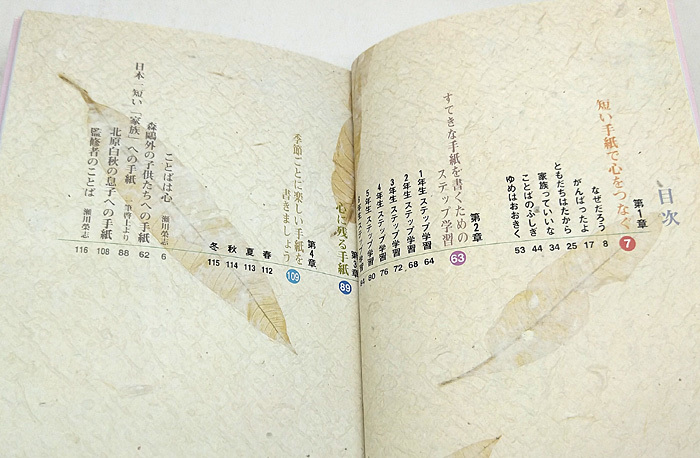 目次
第1章
短い手紙で心をつなぐ 7
なぜだろう 8
がんばったよ 17
ともだちはたから 25
家族っていいな 34
ことばのふしぎ 44
ゆめはおおきく 53
第2章
すてきな手紙を書くための
ステップ学習 63
1年生 ステップ学習 64
2年生 ステップ学習 68
3年生 ステップ学習 72
4年生 ステップ学習 76
5年生 ステップ学習 80
6年生 ステップ学習 84
第3章
心に残る手紙 89
第4章
季節ごとに楽しい手紙を
書きましょう 109
春 112
夏 113
秋 114
冬 115
ことばは心 瀬川榮志 6
森鷗外の子供たちへの手紙 62
日本一短い「家族」への手紙 一筆啓上より 88
北原白秋の息子への手紙 108
監修者のことば 瀬川榮志 116